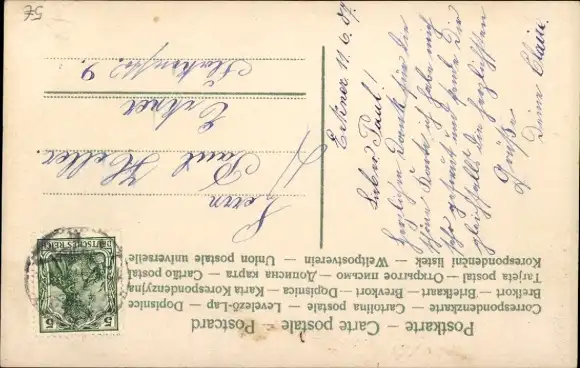 Postkarte – Carte postale – Postcard
Correspondenzkarte – Cartolina postale – Levelező-Lap – Dopisnice
Brefkort – Briefkaart – Brevkort – Dopisnica – Karta Korespondenzyjna
Tarjeta postal – Открытое письмо – Дописна карта – Cartão postal
Korespondenční lístek – Weltpostverein – Union postale universelle
5
DEUTSCHES REICH
Herrn
Paul Heller
Erkner
9.
Erkner 11.6.07.
Lieber Paul!
Herzlichen Dank für die
schöne Karte ich habe mich
sehr gefreut und sende Dir
gleichfalls die herzlichsten
Grüße
Deine Claire.
5£